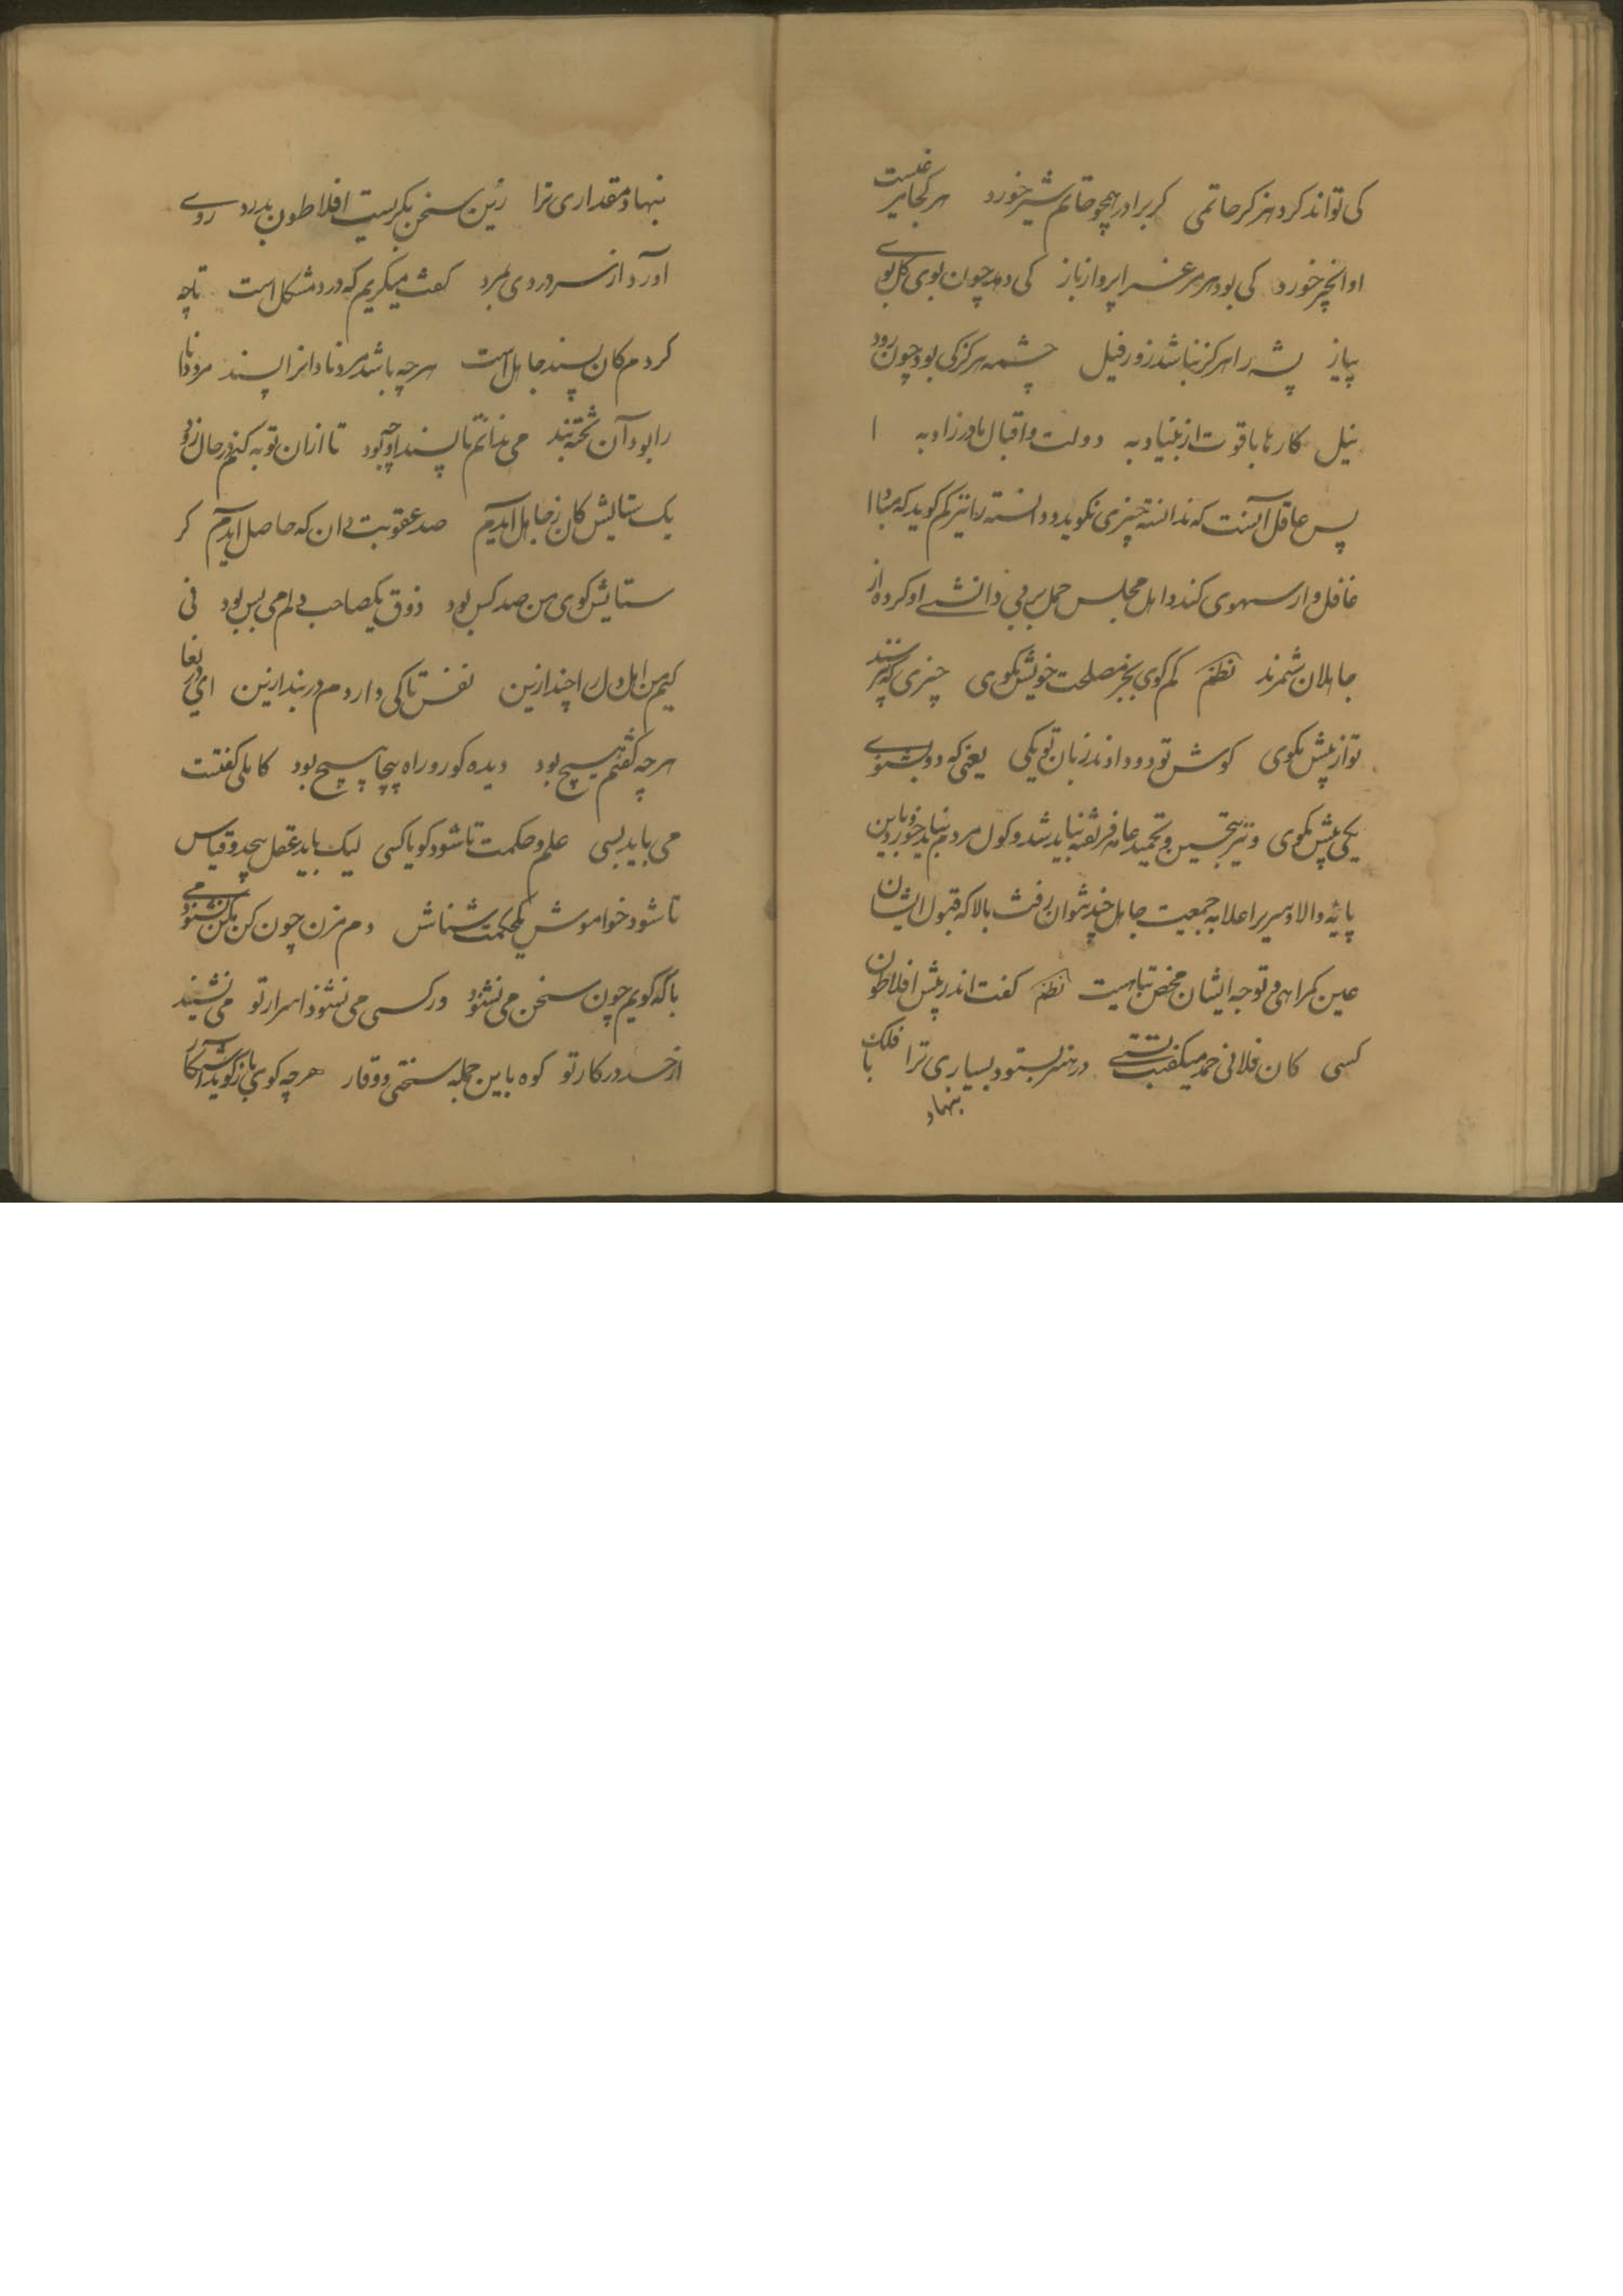 کی تواند کرد هنر کر حاتمی کر برادر همچو حاتم شیر خورد هر کجا بر غیست
او انجیر خورد کی بود هر مرغ را پرواز باز کی دهد چون بوی کل بوی
پیاز پشه را هرکز نباشد زور فیل چشمه هرکز کی بود چون رود
نیل کارها با قوت از بنیاد به دولت و اقبال مادرزاد به ا
پس عاقل آنست که ندانسته چیزی نکوید و دانسته را نیز کم کوید که مبادا
غافل وار سهوی کند و اهل مجلس حمل بر بی دانشی او کرده از
جاهلان شمرند نظم کم کوی بجز مصلحت خویش مکوی چیزی که نپرسند
تو از پیش مکوی کوش تو دو دادند زبان تو یکی یعنی که دو بشنوی
یکی بیش مکوی و نیز بتحسین و تمجید عامه فریفته نباید شد و کول مردم نباید خورد و باین
پایه والا و سریر اعلا به جمعیت جاهل چند نتوان رفت بالا که قبول ایشان
عین کمراهی و توجه ایشان محض تباهیست نظم کفت اندر پیش افلاطون
کسی کان فلانی حمد میکفتت بسی در هنر بستود بسیاری ترا با فلک
بنهاد
بنهاد مقداری ترا زین سخن بکریست افلاطون بدرد روی
آورد از سر دردی بمرد کفت میکریم که دردم مشکل است تا چه
کردم کان پسند جاهل است هر چه باشد مرد نادان را پسند مرد دانا
را بود آن تخته بند می ندانم تا پسند او چه بود تا ازان توبه کنم در حال زود
یک ستایش کان ز جاهل آیدم صد عقوبت دان که حاصل آیدم کر
ستایش کوی من صد کس بود ذوق یکصاحب دلم می بس بود فی
کیم من اهل دل را چند ازین نفس تا کی دارودم در بند ازین ای دریغا
هر چه کفتم هیچ بود دیده کور و راه پیچا پیچ بود کاملی کفتست
می باید بسی علم و حکمت تا شود کویا کسی لیک باید عقل بیحد و قیاس
تا شود خواموش یک حکمت شناش دم مزن چون کن مکن می نشنود
با که کویم چون سخن می نشنود ور کسی می نشنود اسرار تو می نشیند
از حسد در کار تو کوه با این جمله سختی و وقار هر چه کوی باز کوید آشکار